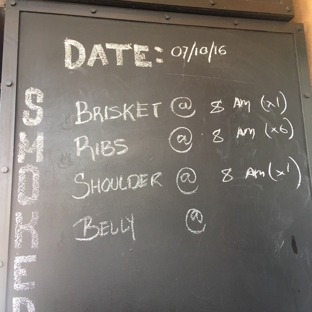 DATE: 07/10/16
BRISKET @ 8 AM (x1)
RIBS @ 8 AM (x6)
SHOULDER @ 8 AM (x1)
BELLY @
SMOKER